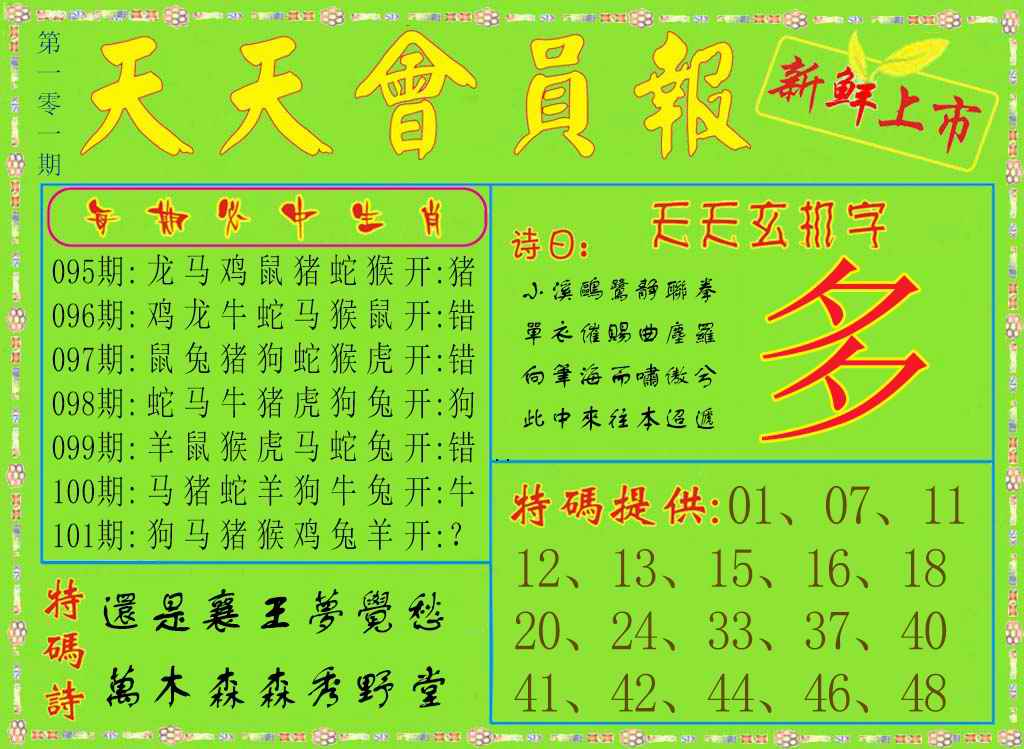 第一零一期
天天會員報
新鮮上市
每期必中生肖
095期: 龙马鸡鼠猪蛇猴 开:猪
096期: 鸡龙牛蛇马猴鼠 开:错
097期: 鼠兔猪狗蛇猴虎 开:错
098期: 蛇马牛猪虎狗兔 开:狗
099期: 羊鼠猴虎马蛇兔 开:错
100期: 马猪蛇羊狗牛兔 开:牛
101期: 狗马猪猴鸡兔羊 开:?
天天玄机字
诗曰:
小溪鷗鷺靜聯拳
單衣催賜曲塵羅
向筆海而嘯傲兮
此中來往本迢遞
多
特碼提供:01、07、11
12、13、15、16、18
20、24、33、37、40
41、42、44、46、48
特碼詩
還是襄王夢覺愁
萬木森森秀野堂